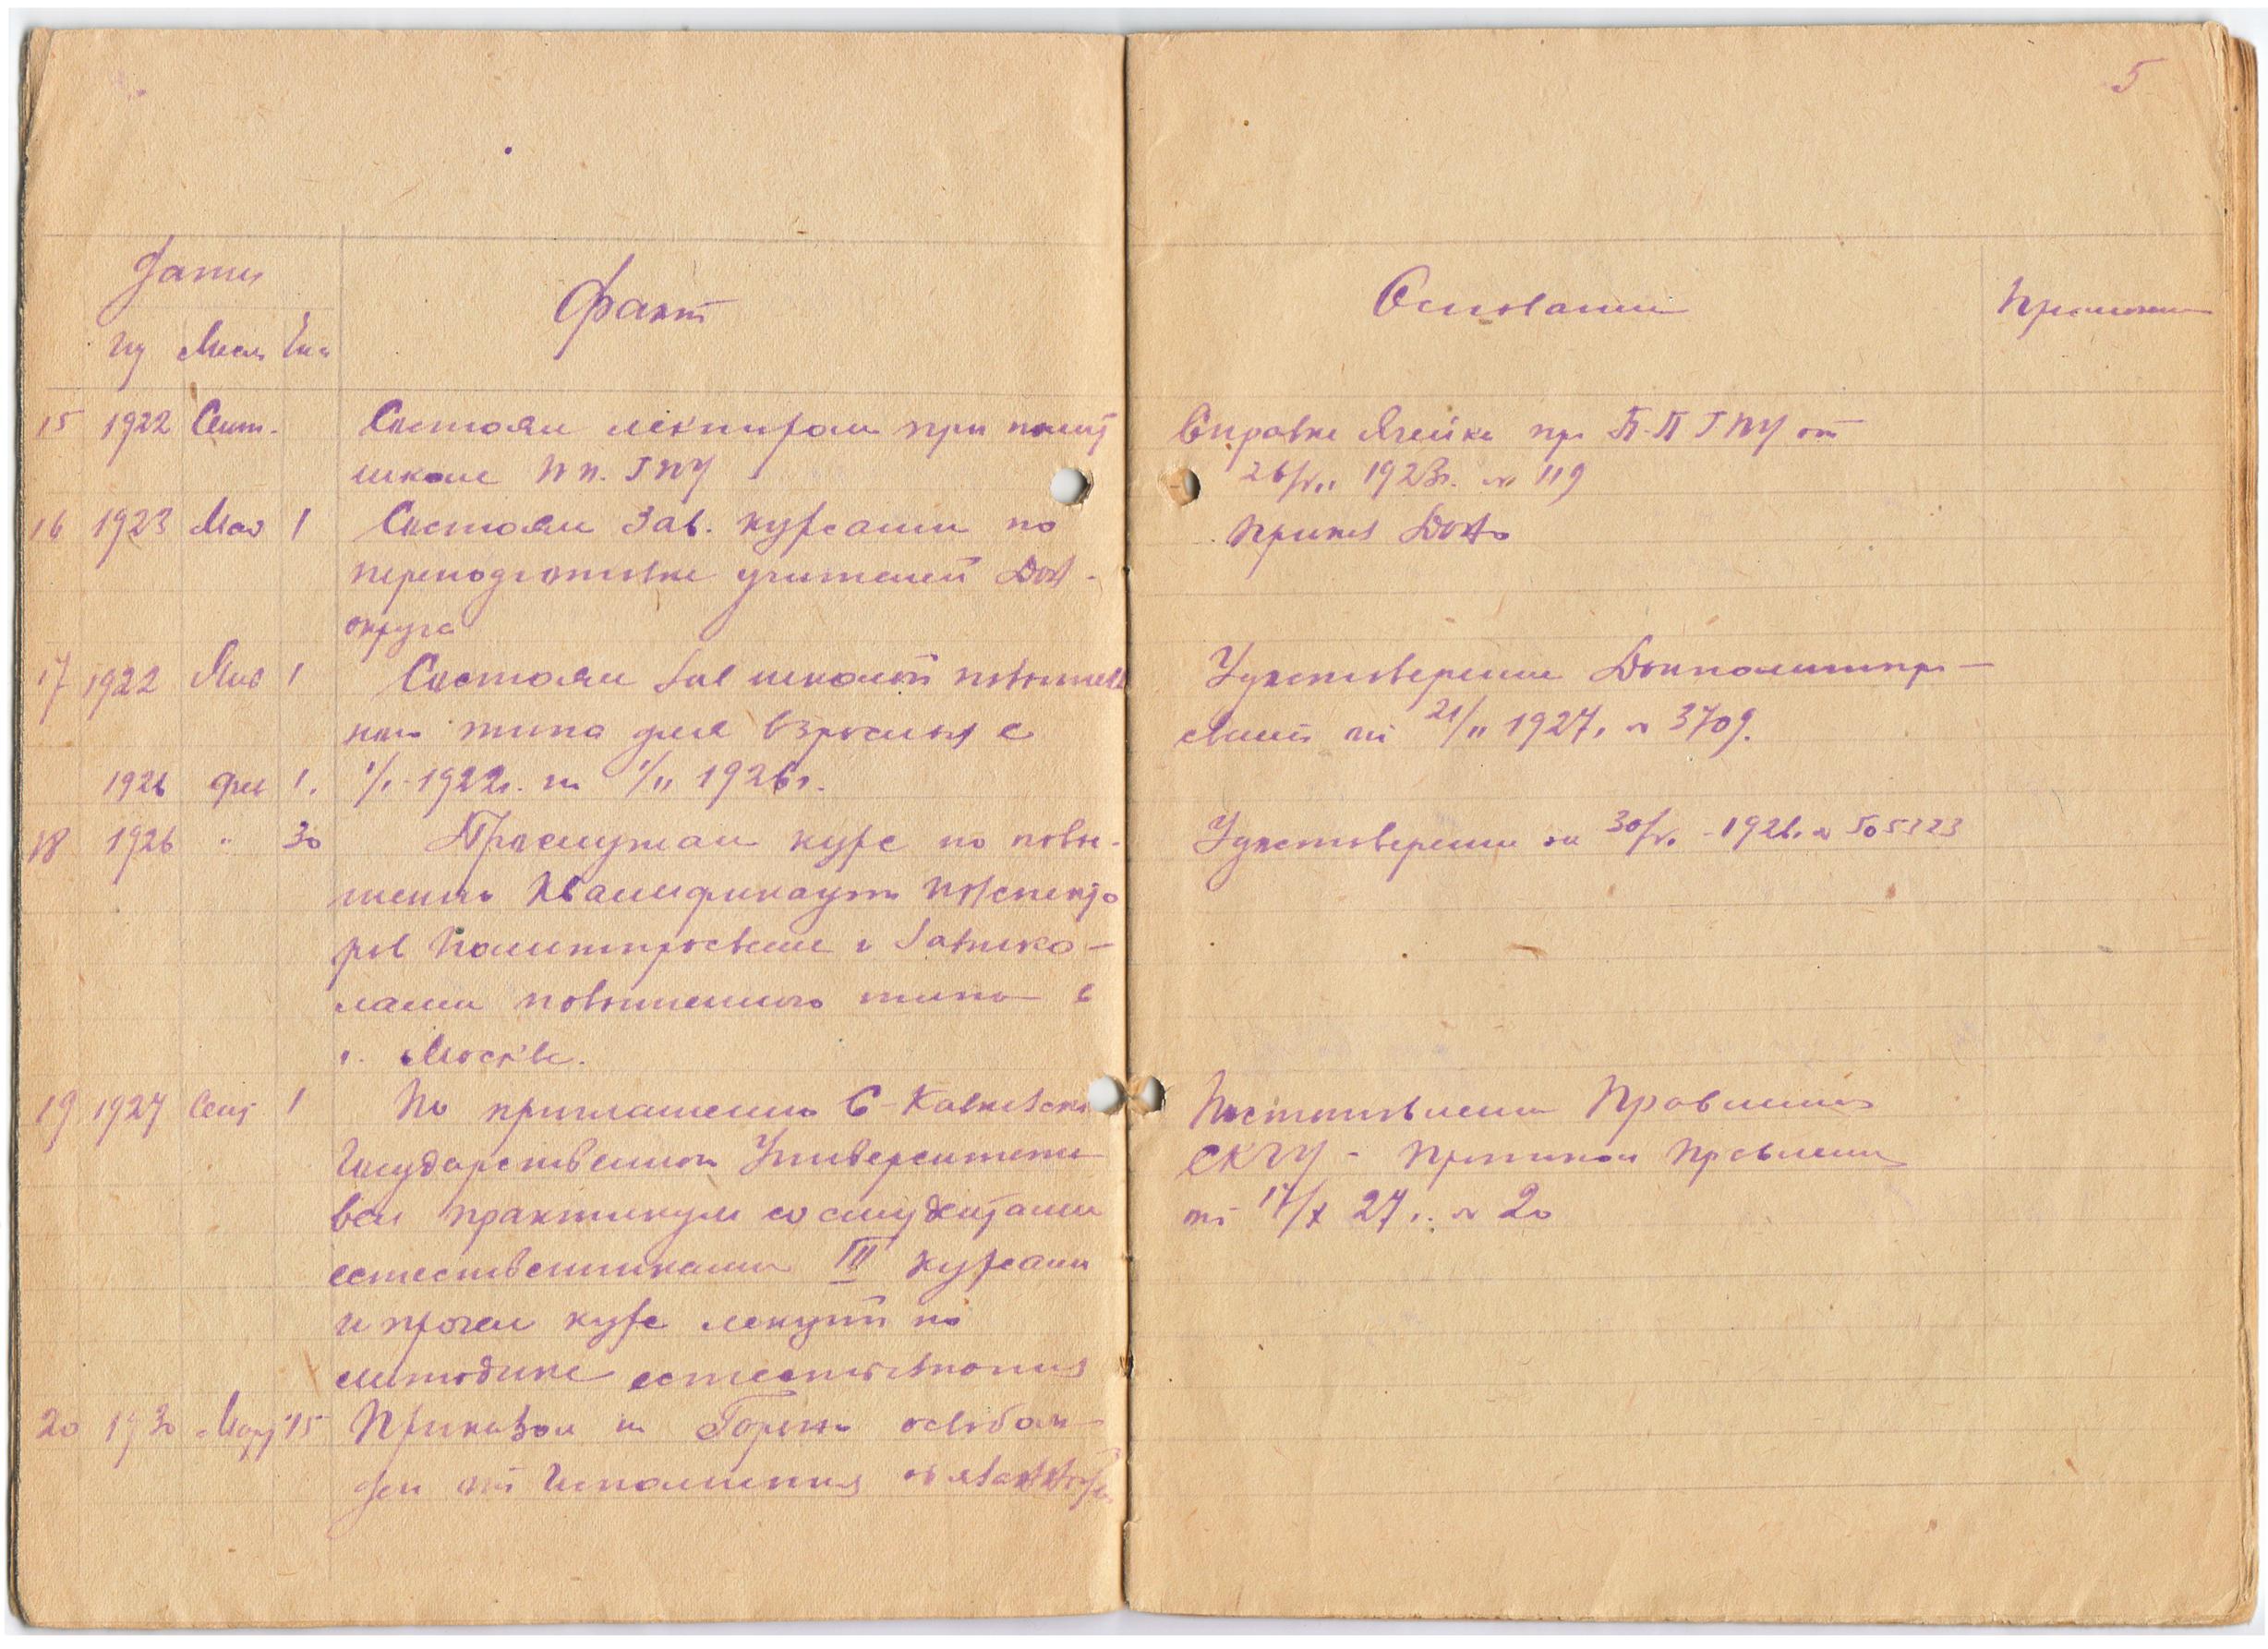 5
Даты
Факт
Основание
Примечан
Год Месяц Чис
15 1922 Сент. Состоял лектором при полит
школе ПП. ГПУ
Справка Ячейки при П-П ГПУ от
1923г. № 119
16 1923 Мая 1 Состоял Зав. курсами по
переподготовке учителей Дон.
округа
Приказ ДонОно
17 1922 Янв 1 Состоял Зав школой повышен
ного типа для взрослых с
1926 фев 1. 1/I-1922г. по 1/II 1926г.
Удостоверение Донполитпро-
свет от 21/II 1927г № 3709.
18 1926 " 30 Прослушал курс по повы-
шению квалификации инспекто
ров Политпросвета и Завшко-
лами повышенного типа в
г. Москве.
Удостоверение от 30/ -1926г № 505323
19 1927 Сент 1 По приглашению С-Кавказск
Государственного Университета
вел практикум со студентами
естественниками III курсами
и прочел курс лекций по
методике естествознания
Постановление Правления
СКГУ - Протокол Правления
от 17/X 27г. № 20
20 1930 Март 15 Приказом по ГорОно освобож-
ден от исполнения